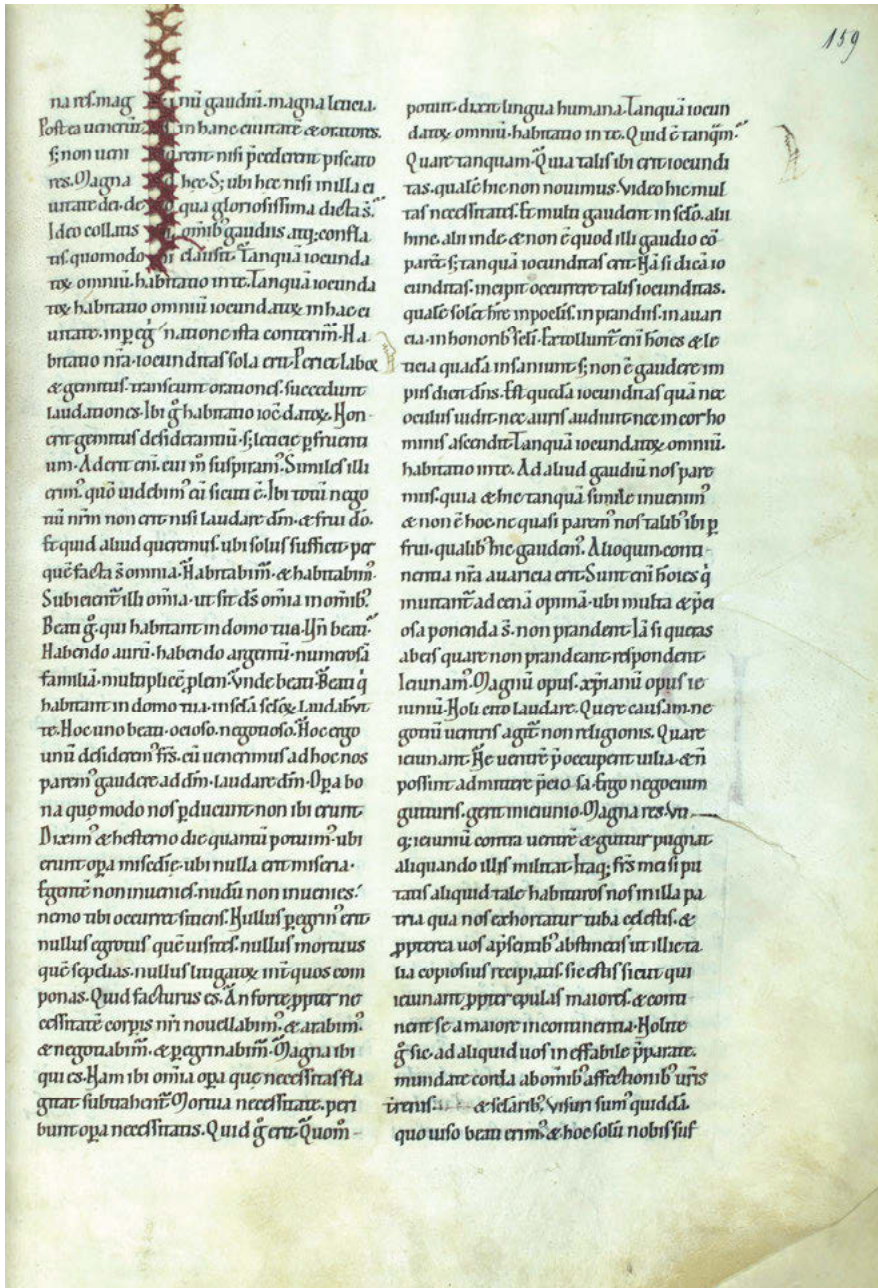 159
na res. mag nū gaudiū. magna leticia.
Postea uenerūt in hanc ciuitatē & oratores.
s; non ueni rent. nisi p̄cederent piscato
res. Magna hec. S; ubi hec nisi in illa ci
uitate dei. de qua gloriosissima dicta s̄.
Ideo collatis omib; gaudiis atq; confla
tis. quomodo clausit. Tanquā iocunda
toꝝ omniū. habitatio in te. Tanquā iocunda
toꝝ habitatio omniū iocundatoꝝ in hac ci
uitate. in peg̓natione ista conterim̓. Ha
bitatio nr̄a. iocunditas sola erit. Periet laboꝝ
& gemitus. transeunt orationes. succedunt
laudationes. Ibi g̓ habitatio iocūdatoꝝ. Non
erit gemitus desiderantiū. s; leticie ꝑfruenti
um. Aderit eni. cui m̊ suspiram̓. Similes illi
erim̓. quō uidebim̓ eū sicuti ē. Ibi totū nego
tiū nr̄m non erit nisi laudare dm̄. & frui dō.
Et quid aliud queremus. ubi solus sufficit. per
quē facta s̄ omnia. Habitabim̓. & habitabim̓.
Subicient̓ illi omīa. ut sit ds̄ omīa in omib;.
Beati g̓. qui habitant in domo tua. Vn̄ beati.
Habendo aurū. habendo argentū. numerosā
familiā. multiplicē ꝓlem. Vnde beati. Beati q̓
habitant in domo tua. in sclā scloꝝ laudabūt
te. Hoc uno beati. ocioso. negotioso. Hoc ergo
unū desiderem̓ frs̄. cū uenerimus ad hoc nos
parem̓ gaudere ad dm̄. laudare dm̄. Opa bo
na quomodo nos ꝑducunt. non ibi erunt.
Dixim̓ & hesterno die quantū potuim̓. ubi
erunt opa misc̄die. ubi nulla erit miseria.
Egentē non inuenies. nudū non inuenies.
nemo tibi occurret sitiens. Nullus ꝑegrin̓ erit.
nullus egrotus quē uisites. nullus mortuus
quē sepelias. nullus litigatoꝝ int̓ quos com
ponas. Quid facturus es. An forte ꝓpter ne
cessitatē corpis nr̄i nouellabim̓. & arabim̓.
& negotiabim̓. & ꝑegrinabim̓. Magna ibi
quies. Nam ibi omīa opa que necessitas fla
gitat subtrahent̓. Mortua necessitate. peri
bunt opa necessitatis. Quid g̓ erit. Quom̊
potuit. dixit lingua humana. Tanquā iocun
datoꝝ omniū. habitatio in te. Quid ē tanq̄m.
Quare tanquam. Quia talis ibi erit iocundi
tas. qualē hic non nouimus. Video hic mul
tas necessitates. Et multi gaudent in sclo. alii
hinc. alii inde. & non ē quod illi gaudio cō
parē. s; tanquā iocunditas erit. Nā si dicā io
cunditas. incipit occurrere talis iocunditas.
qualē solet hr̄e in poclis. in prandiis. in auari
cia. in honorib; scli. Extollunt̓ eni hoīes & le
ticia quadā insaniunt. s; non ē gaudere im
piis dicit dns̄. Est quedā iocunditas quā nec
oculus uidit. nec auris audiuit. nec in cor ho
minis ascendit. Tanquā iocundatoꝝ omniū.
habitatio in te. Ad aliud gaudiū nos pare
mus. quia & hic tanquā simile inuenim̓
& non ē hoc. ne quasi parem̓ nos talib; ibi ꝑ
frui. qualib; hic gaudem̓. Alioquin. conti
nentia nr̄a auaricia erit. Sunt eni hoīes q̓
inuitant̓ ad cenā opimā. ubi multa & p̄ci
osa ponenda s̄. non prandent. Iā si queras
ab eis quare non prandeant. respondent.
Ieiunam̓. Magnū opus. xp̄ianū opus ie
iuniū. Noli cito laudare. Quere causam. ne
gotiū uentris agit̓. non religionis. Quare
ieiunant. Ne uentrē p̄occupent uilia. & n̄
possint admittere p̄cio sa. Ergo negocium
gutturis. gerit in ieiunio. Magna res. Vti
q; ieiuniū contra uentrē & guttur pugnat.
aliquando illis militat. Itaq; frs̄ mei si pu
tatis aliquid tale habituros nos in illa pa
tria qua nos exhortatur tuba celestis. &
ꝓpterea uos a p̄sentib; abstinetis ut illic ta
lia copiosius recipiatis. sic estis sicut qui
ieiunant ꝓpter epulas maiores. & conti
nent se a maiore incontinentia. Nolite
g̓ sic. ad aliquid uos ineffabile p̄parate.
mundate corda ab omib; affectionib; ur̄is
trenis. & sclarib;. Visuri sum̓ quiddā.
quo uiso beati erim̓. & hoc solū nobis suf